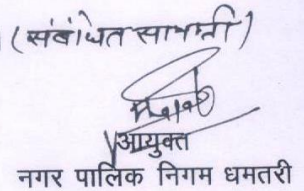 (संबंधित सामग्री)
आयुक्त
नगर पालिक निगम धमतरी